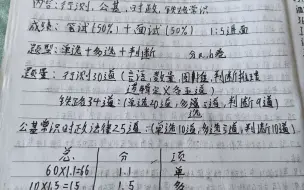 内容:行测、公基、时政、铁路常识
成绩:笔试(50%)+面试(50%) 1:5进面
题型:单选+多选+判断
题量:行测30道(言语、数量、图形、判断推理
逻辑定义各五道)
铁路34道:(单选20道,多选5道,判断9道)
公基常识时政法律25道:(单选10道,多选5道,判断10道)
总 分 项
60×1.1=66 1.1 单
10×1.5=15 1.5 多